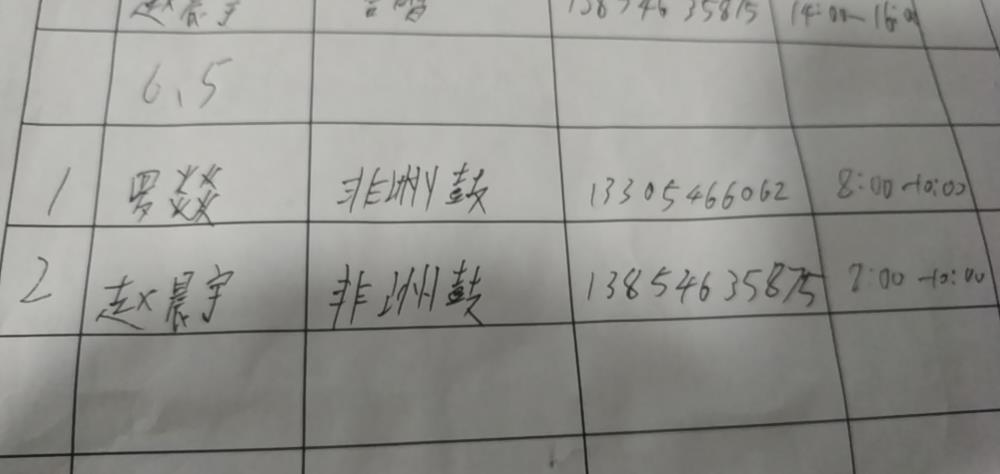 赵晨宇 13854635875 14:00-16:00
6.5
1 罗燚 非洲鼓 13305466062 8:00-10:00
2 赵晨宇 非洲鼓 13854635875 8:00-10:00